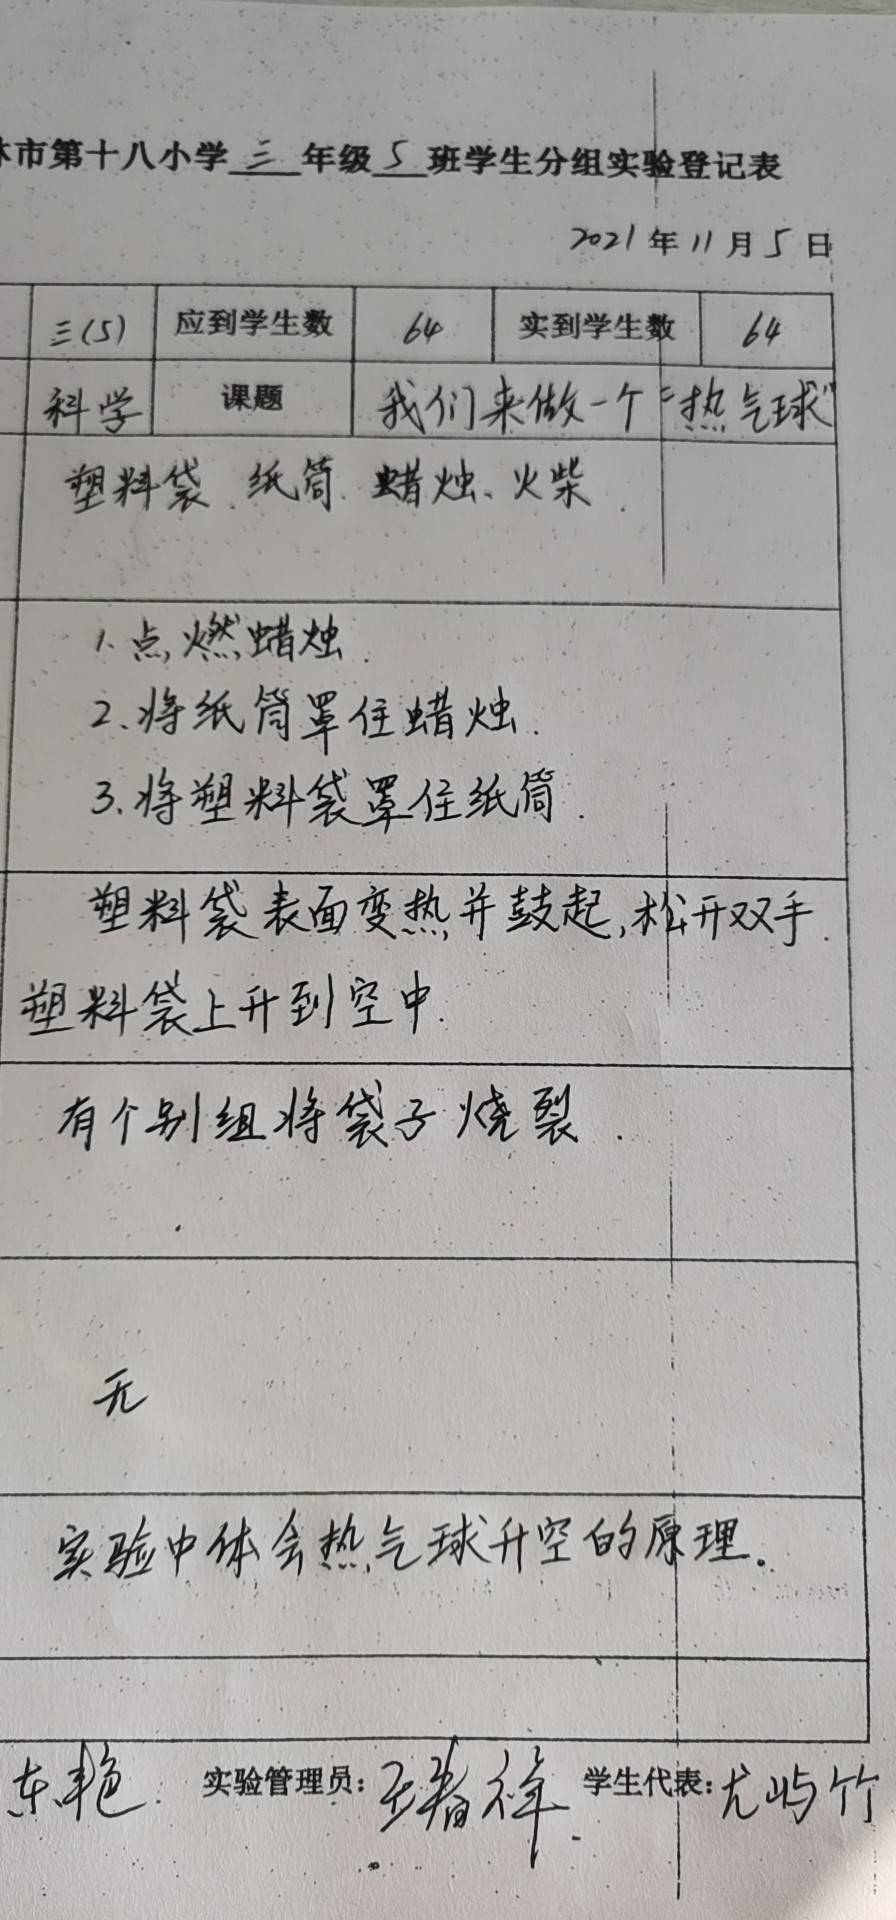 市第十八小学三年级5班学生分组实验登记表
2021年11月5日
三(5) 应到学生数 64 实到学生数 64
科学 课题 我们来做一个“热气球”
塑料袋、纸筒、蜡烛、火柴.
1.点燃蜡烛.
2.将纸筒罩住蜡烛.
3.将塑料袋罩住纸筒.
塑料袋表面变热并鼓起,松开双手.
塑料袋上升到空中.
有个别组将袋子烧裂.
无
实验中体会热气球升空的原理。
东艳 实验管理员: 学生代表:尤屿竹